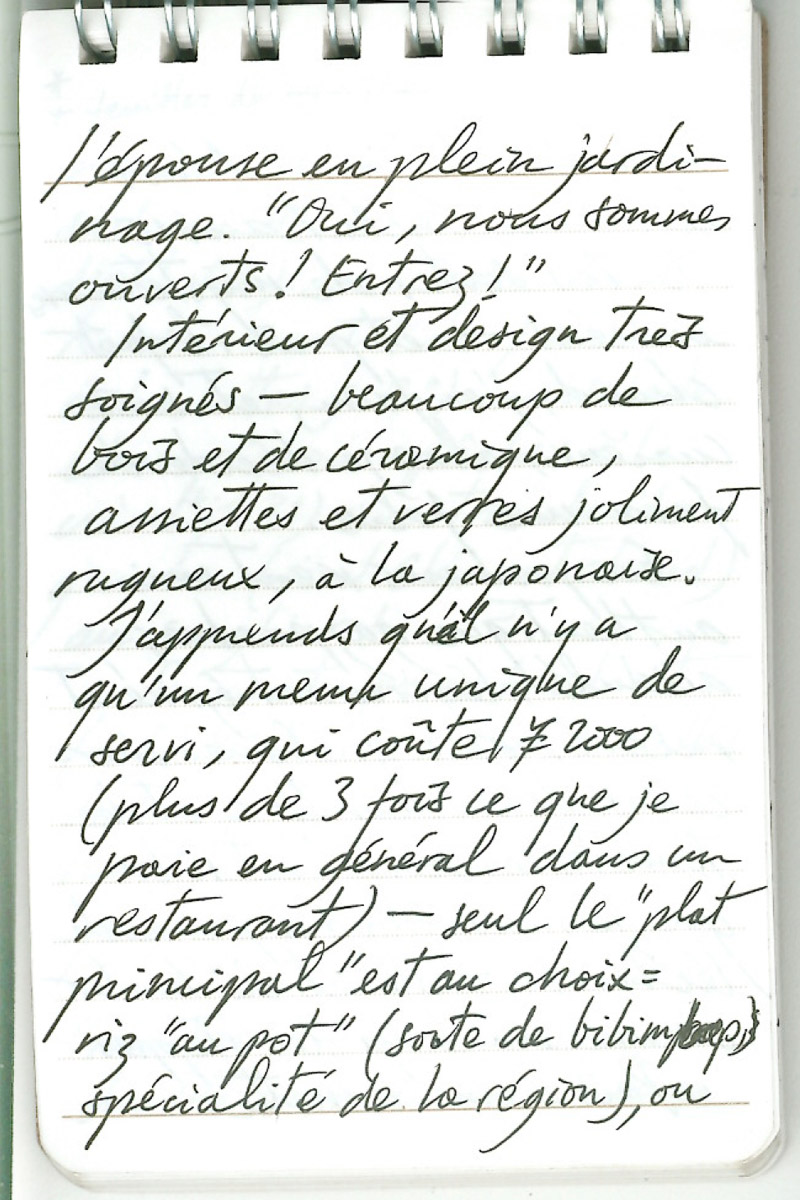 l'épouse en plein jardi-
nage. "Oui, nous sommes
ouverts! Entrez!"
Intérieur et design très
soignés — beaucoup de
bois et de céramique,
assiettes et verres joliment
rugueux, à la japonaise.
J'apprends qu'il n'y a
qu'un menu unique de
servi, qui coûte ¥ 2000
(plus de 3 fois ce que je
paie en général dans un
restaurant) — seul le "plat
principal" est au choix :
riz "au pot" (sorte de bibimbap,
spécialité de la région), ou